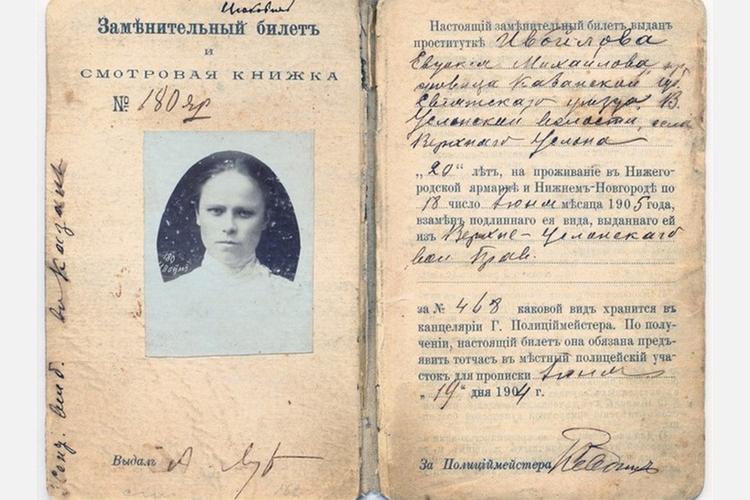 Замѣнительный билетъ
и
СМОТРОВАЯ КНИЖКА
№ 180 яр
180
Выдалъ
Настоящій замѣнительный билетъ выданъ
проституткѣ Ивойлова
Евдокія Михайлова, кр.
Казанской губ.
уѣзда, В.
Услонской волости, села
Верхняго Услона
„20“ лѣтъ, на проживаніе въ Нижего-
родской ярмаркѣ и Нижнемъ-Новгородѣ по
18 число Іюня мѣсяца 1905 года,
взамѣнъ подлиннаго ея вида, выданнаго ей
изъ Верхне-Услонскаго
вол Прав.
за № 468 каковой видъ хранится въ
канцеляріи Г. Полиціймейстера. По полу-
ченіи, настоящій билетъ она обязана предъ-
явить тотчасъ въ мѣстный полицейскій уча-
стокъ для прописки Іюня
„19“ дня 1904 г.
За Полиціймейстера